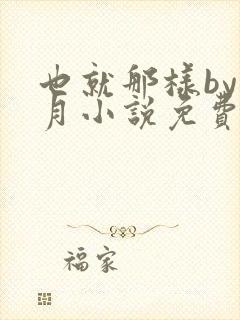 也就那樣by
月小說免費
福家